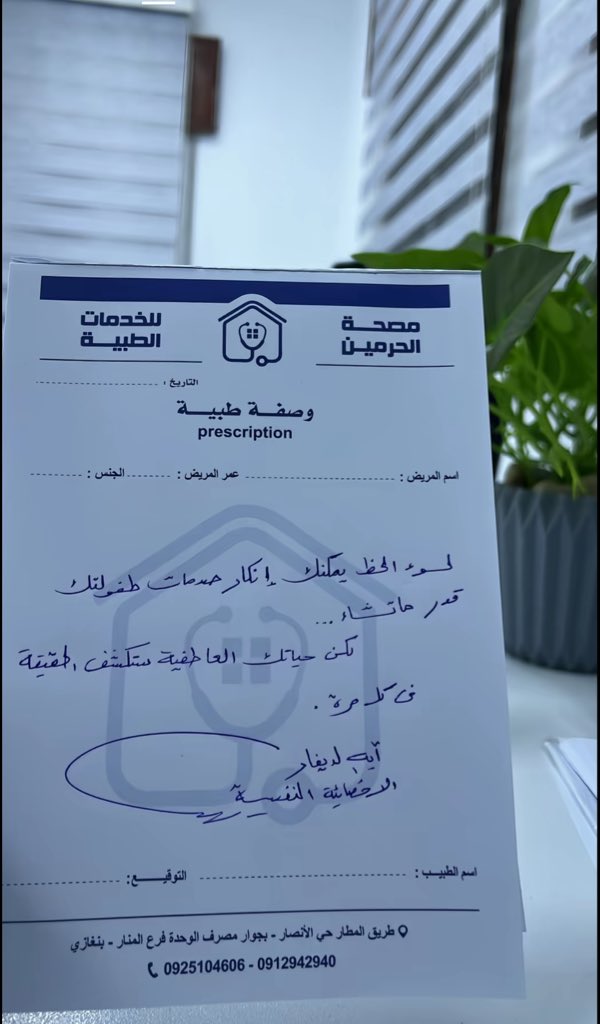 مصحة الحرمين
للخدمات الطبية
التاريخ :
وصفة طبية
prescription
اسم المريض : عمر المريض : الجنس :
لسوء الحظ يمكنك إنكار صدمات طفولتك
قدر ما تشاء ...
لكن حياتك العاطفية ستكشف الحقيقة
في كل مرة .
آية
الاخصائية النفسية
اسم الطبيب : التوقيع:
طريق المطار حي الأنصار - بجوار مصرف الوحدة فرع المنار - بنغازي
0925104606 - 0912942940